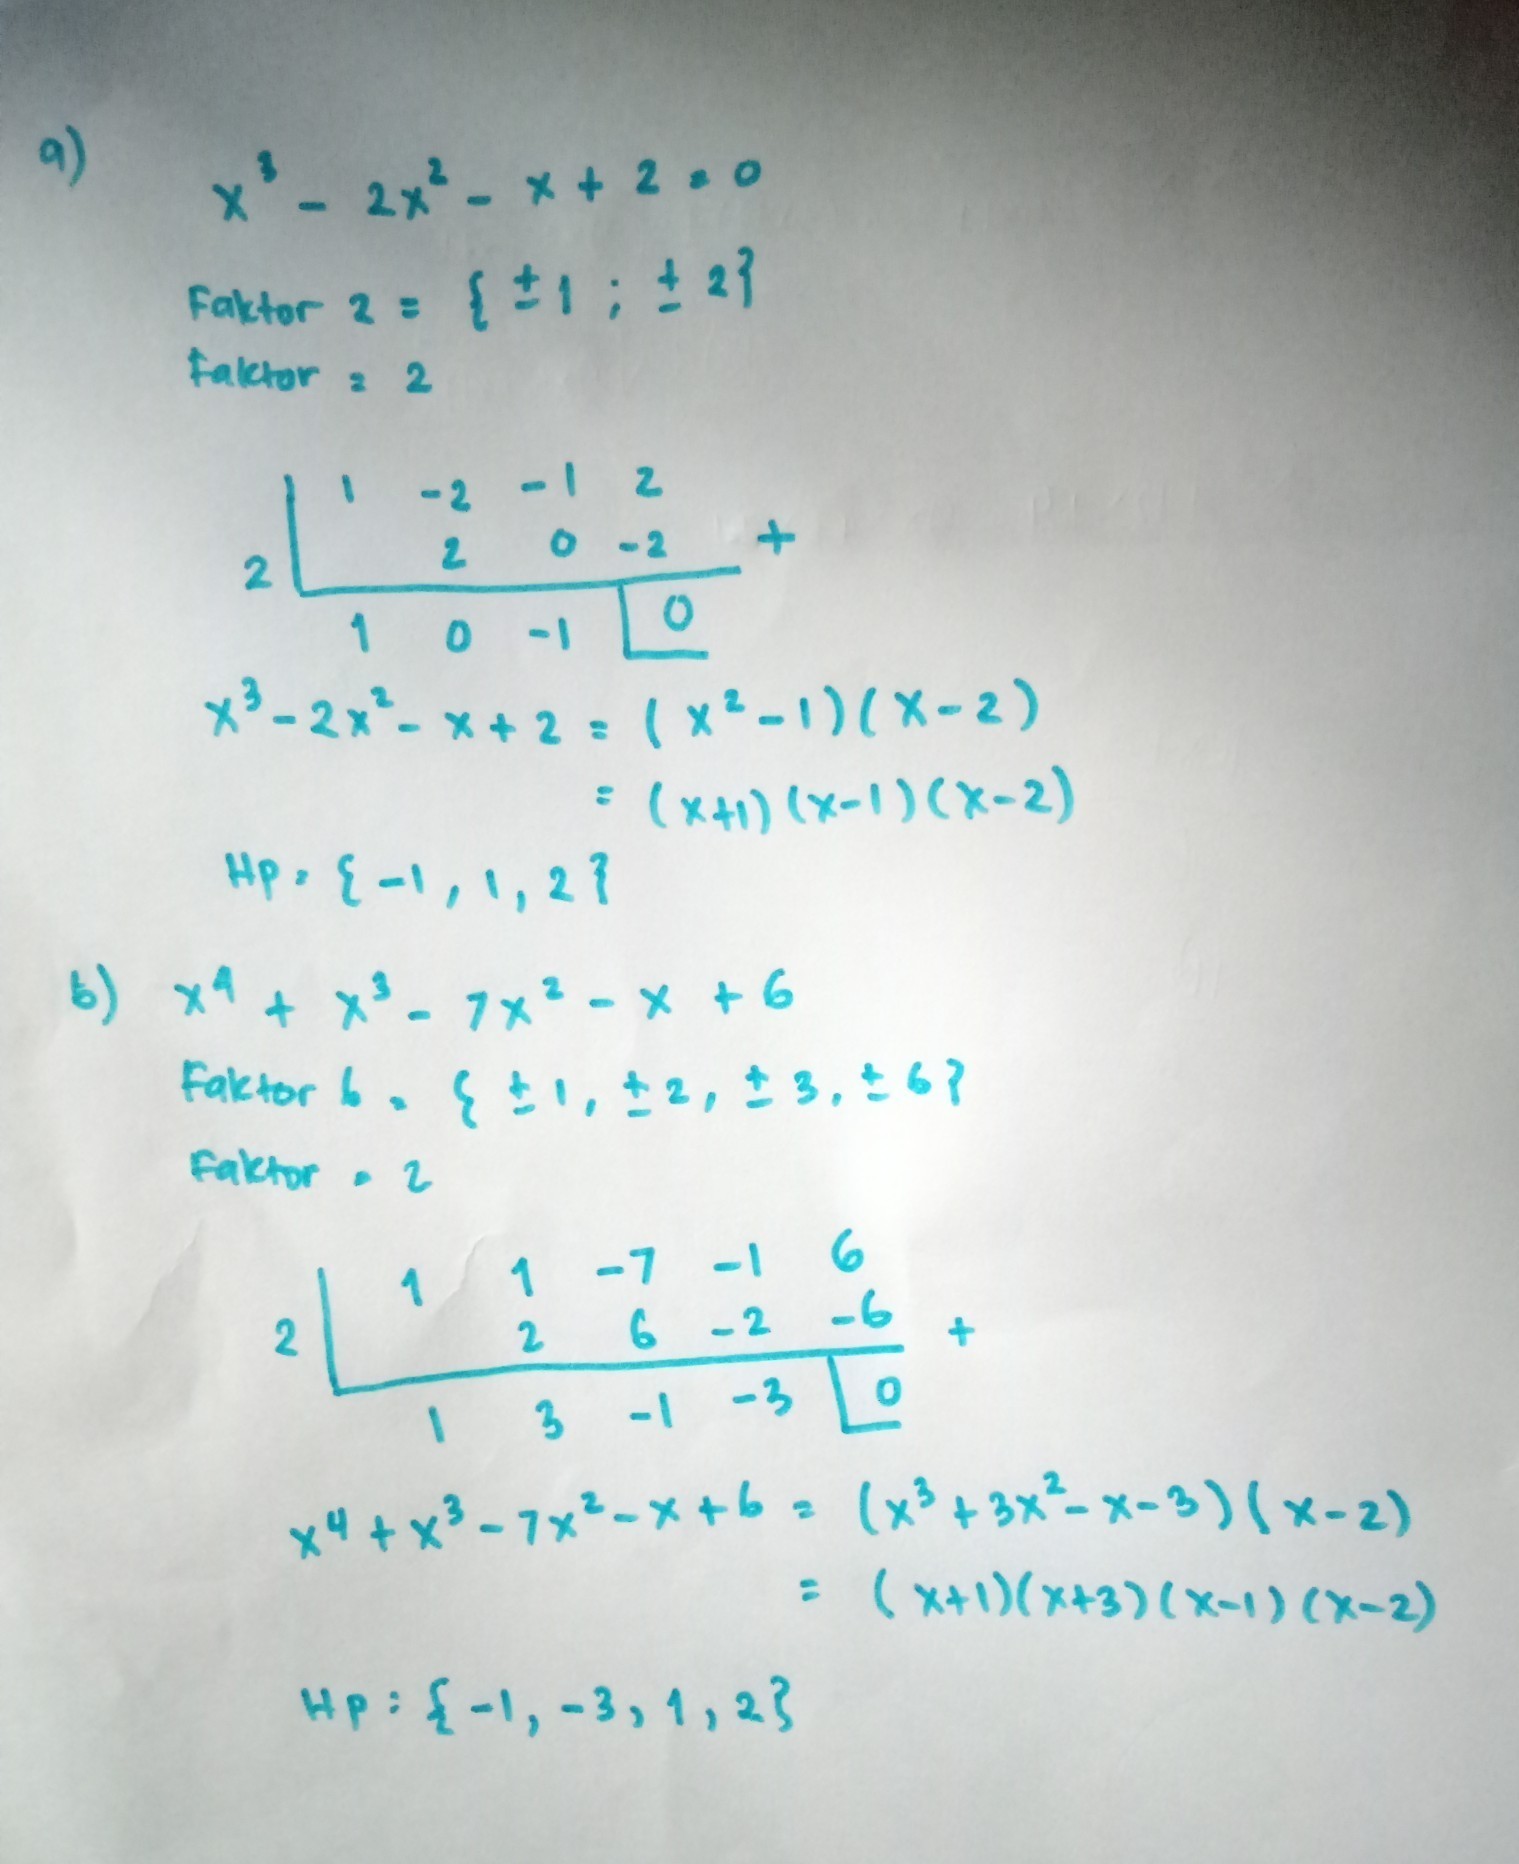 a)
x³ - 2x² - x + 2 = 0
Faktor 2 = { ± 1 ; ± 2}
Faktor = 2
1 -2 -1 2
2 0 -2 +
2
1 0 -1 0
x³ - 2x² - x + 2 = (x² - 1)(x - 2)
= (x+1)(x-1)(x-2)
Hp = {-1, 1, 2}
b) x⁴ + x³ - 7x² - x + 6
Faktor 6 = { ± 1, ± 2, ± 3, ± 6}
Faktor = 2
1 1 -7 -1 6
2 2 6 -2 -6 +
1 3 -1 -3 0
x⁴ + x³ - 7x² - x + 6 = (x³ + 3x² - x - 3)(x - 2)
= (x+1)(x+3)(x-1)(x-2)
Hp : {-1, -3, 1, 2}